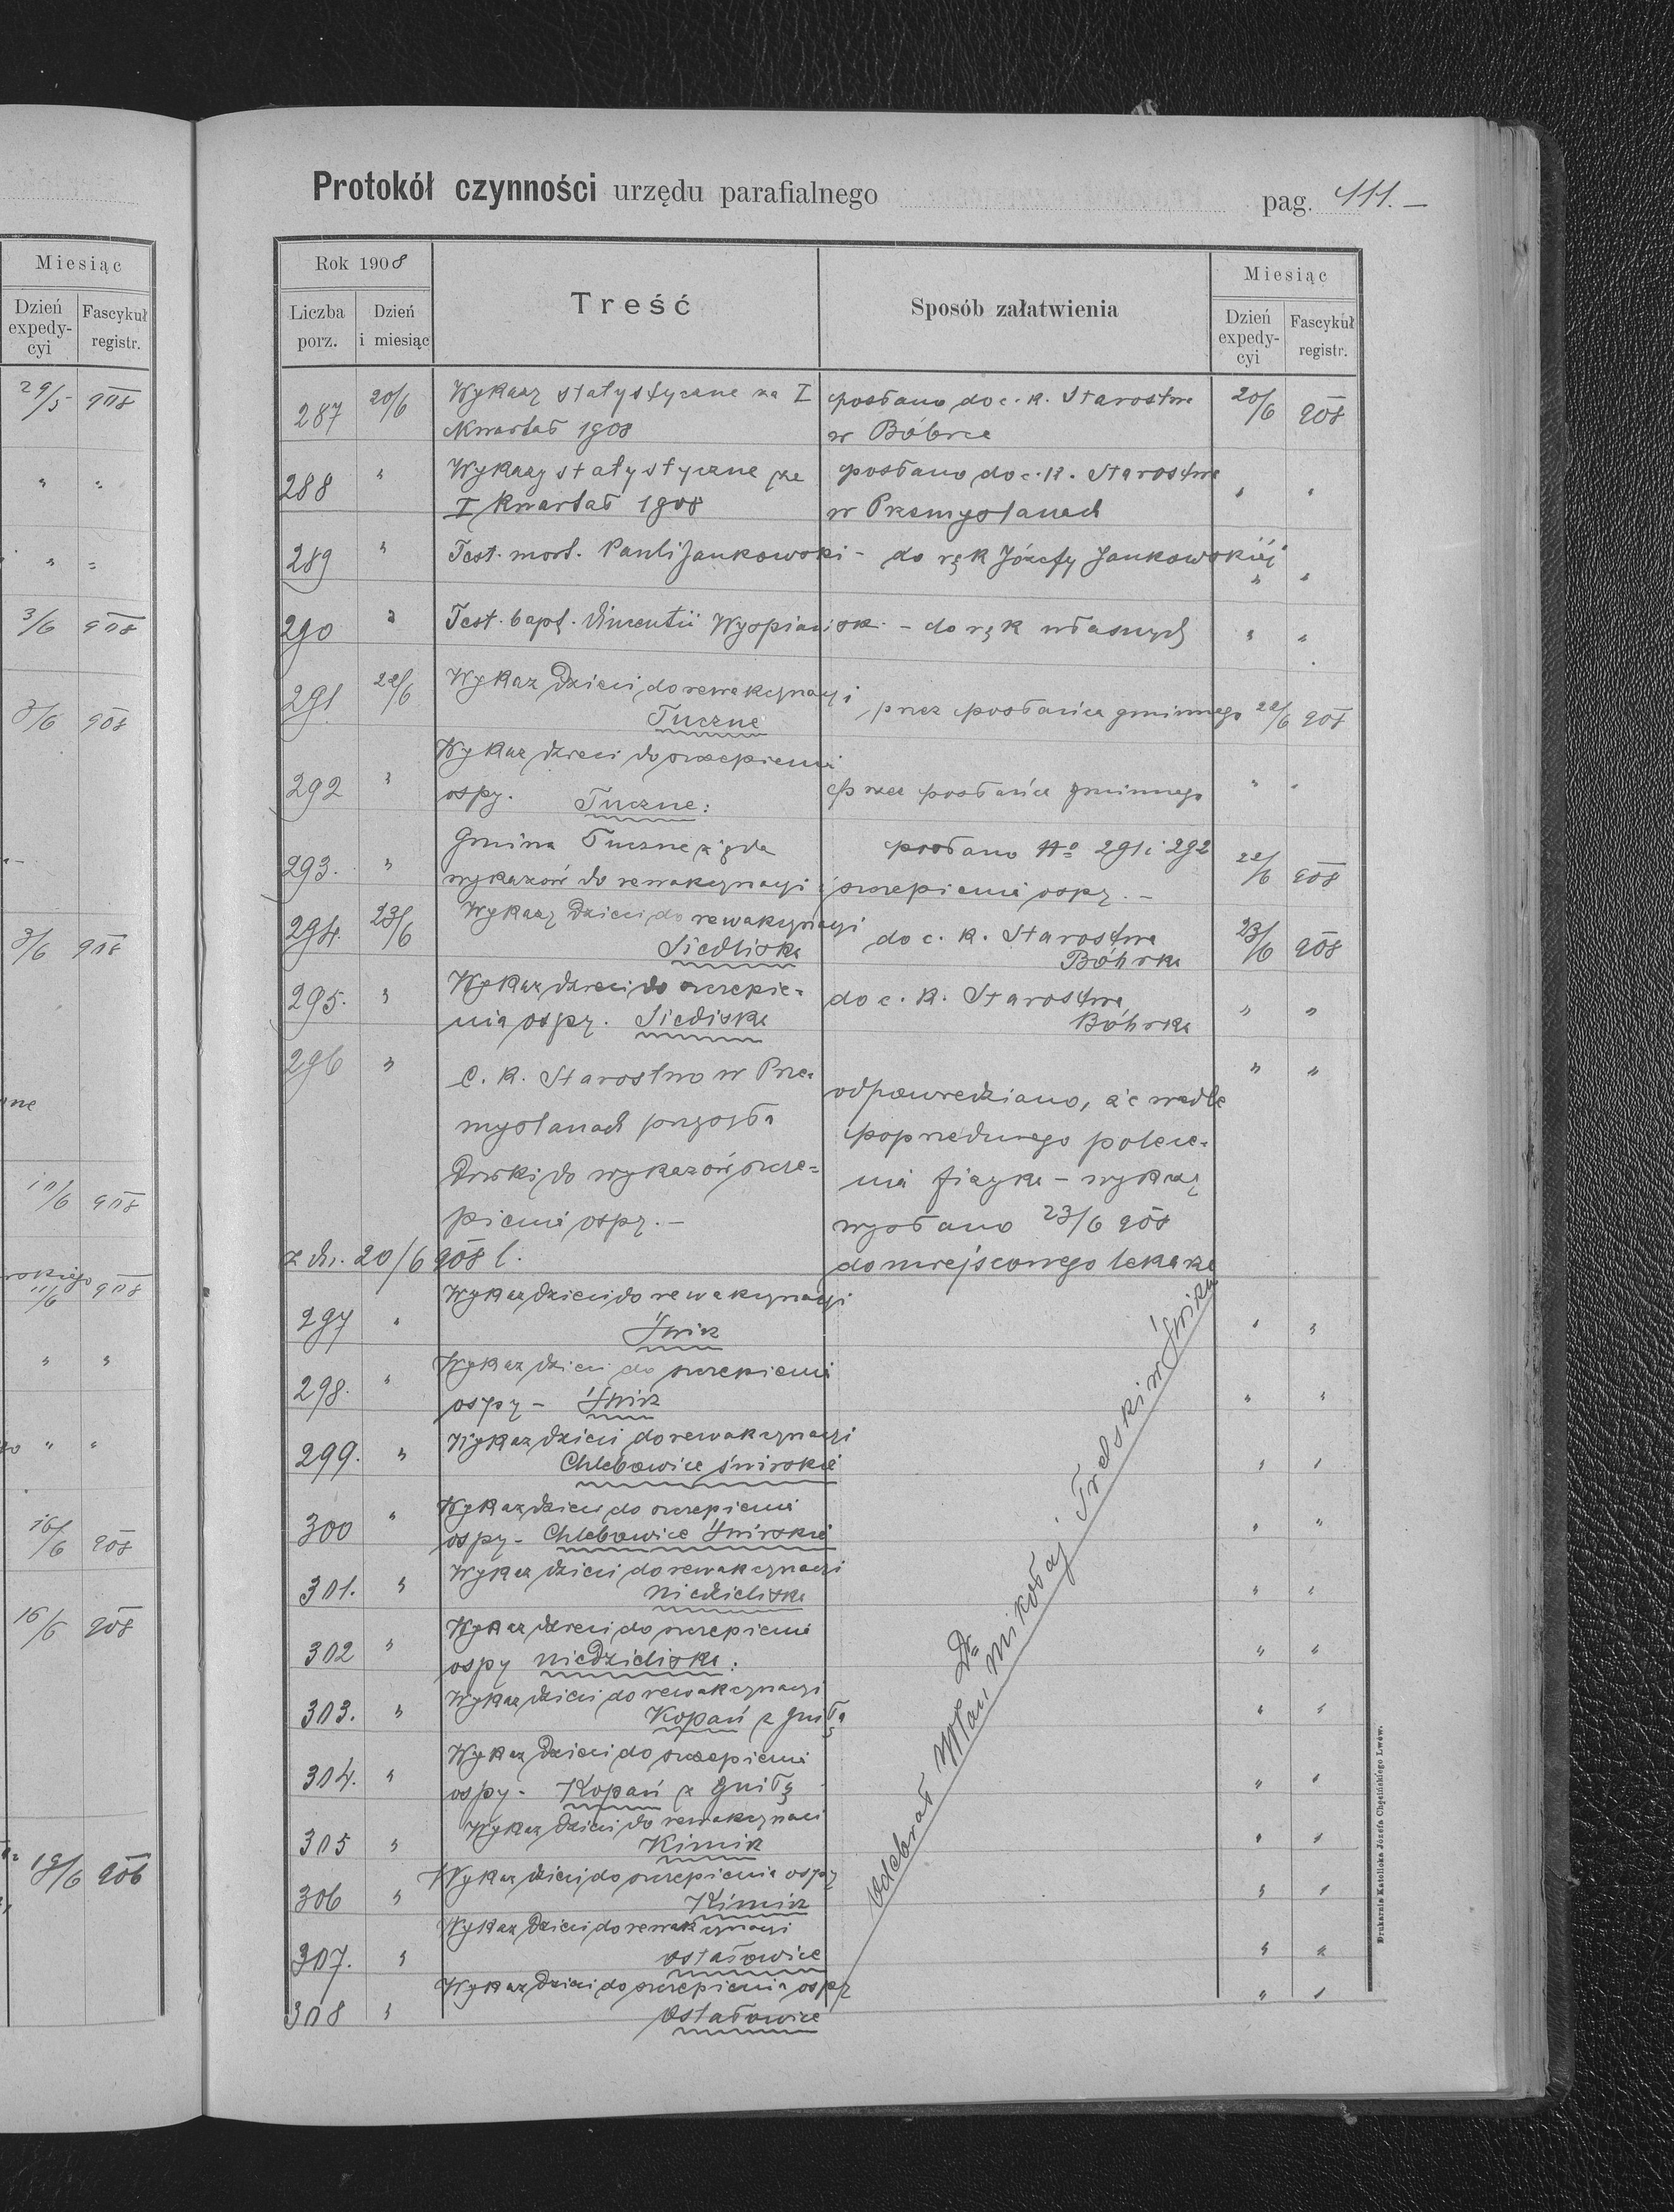 Miesiąc
Dzień expedy-cyi
Fascykuł registr.
29/5 908
" "
" "
3/6 908
3/6 908
3/6 908
10/6 908
11/6 908
" "
" "
16/6 908
16/6 908
19/6 906
Protokół czynności urzędu parafialnego pag. 111.—
Rok 1908
Liczba porz.
Dzień i miesiąc
Treść
Sposób załatwienia
Miesiąc
Dzień expedy-cyi
Fascykuł registr.
287 20/6 Wykazy statystyczne za I posłano do c. k. Starostwa 20/6 908
Kwartał 1908 w Bóbrce
288 " Wykazy statystyczne za posłano do c. k. Starostwa " "
I Kwartał 1908 w Przemyślanach
289 " Test. mort. Pauli Jankowski - do rąk Józefy Jankowskiej " "
290 " Test. bapt. Vincentii Wyspiański - do rąk własnych " "
291 22/6 Wykaz dzieci do rewakcynacyi
Tuczne przez posłańca gminnego 22/6 908
292 " Wykaz dzieci do szczepienia
ospy. Tuczne: przez posłańca gminnego " "
293. " Gmina Tuczne żąda posłano No 291 i 292 22/6 908
wykazów do rewakcynacyi i szczepienia ospy. —
294. 23/6 Wykaz dzieci do rewakcynacyi do c. k. Starostwa 23/6 908
Siedliska Bóbrka
295. " Wykaz dzieci do szczepie= do c. k. Starostwa " "
nia ospy. Siedliska Bóbrka
296 " C. k. Starostwo w Prze= odpowiedziano, że wedle " "
myślanach przysyła poprzedniego polece=
Druki do wykazów szcze= nia fizyka - wykazy
pienia ospy. — wysłano 23/6 908
z dn. 20/6 908 l. do miejscowego lekarza
297 " Wykaz dzieci do rewakcynacyi " "
Świrz
298. " Wykaz dzieci do szczepienia
ospy - Świrz " "
299. " Wykaz dzieci do rewakcynacyi
Chlebowice świrskie " "
300 " Wykaz dzieci do szczepienia
ospy - Chlebowice Świrskie " "
301. " Wykaz dzieci do rewakcynacyi
Niedzieliska " "
302 " Wykaz dzieci do szczepienia
ospy Niedzieliska: " "
303. " Wykaz dzieci do rewakcynacyi
Kopań z Gniłą " "
304. " Wykaz dzieci do szczepienia
ospy - Kopań z Gniłą " "
305 " Wykaz dzieci do rewakcynaci
Kimirz " "
306 " Wykaz dzieci do szczepienia ospy
Kimirz " "
307. " Wykaz dzieci do rewakcynacyi
Ostałowice " "
308 " Wykaz dzieci do szczepienia ospy
Ostałowice " "
Odebrał WPan Dr Mikołaj Trelski w Świrzu
Drukarnia Katolicka Józefa Chęcińskiego Lwów.